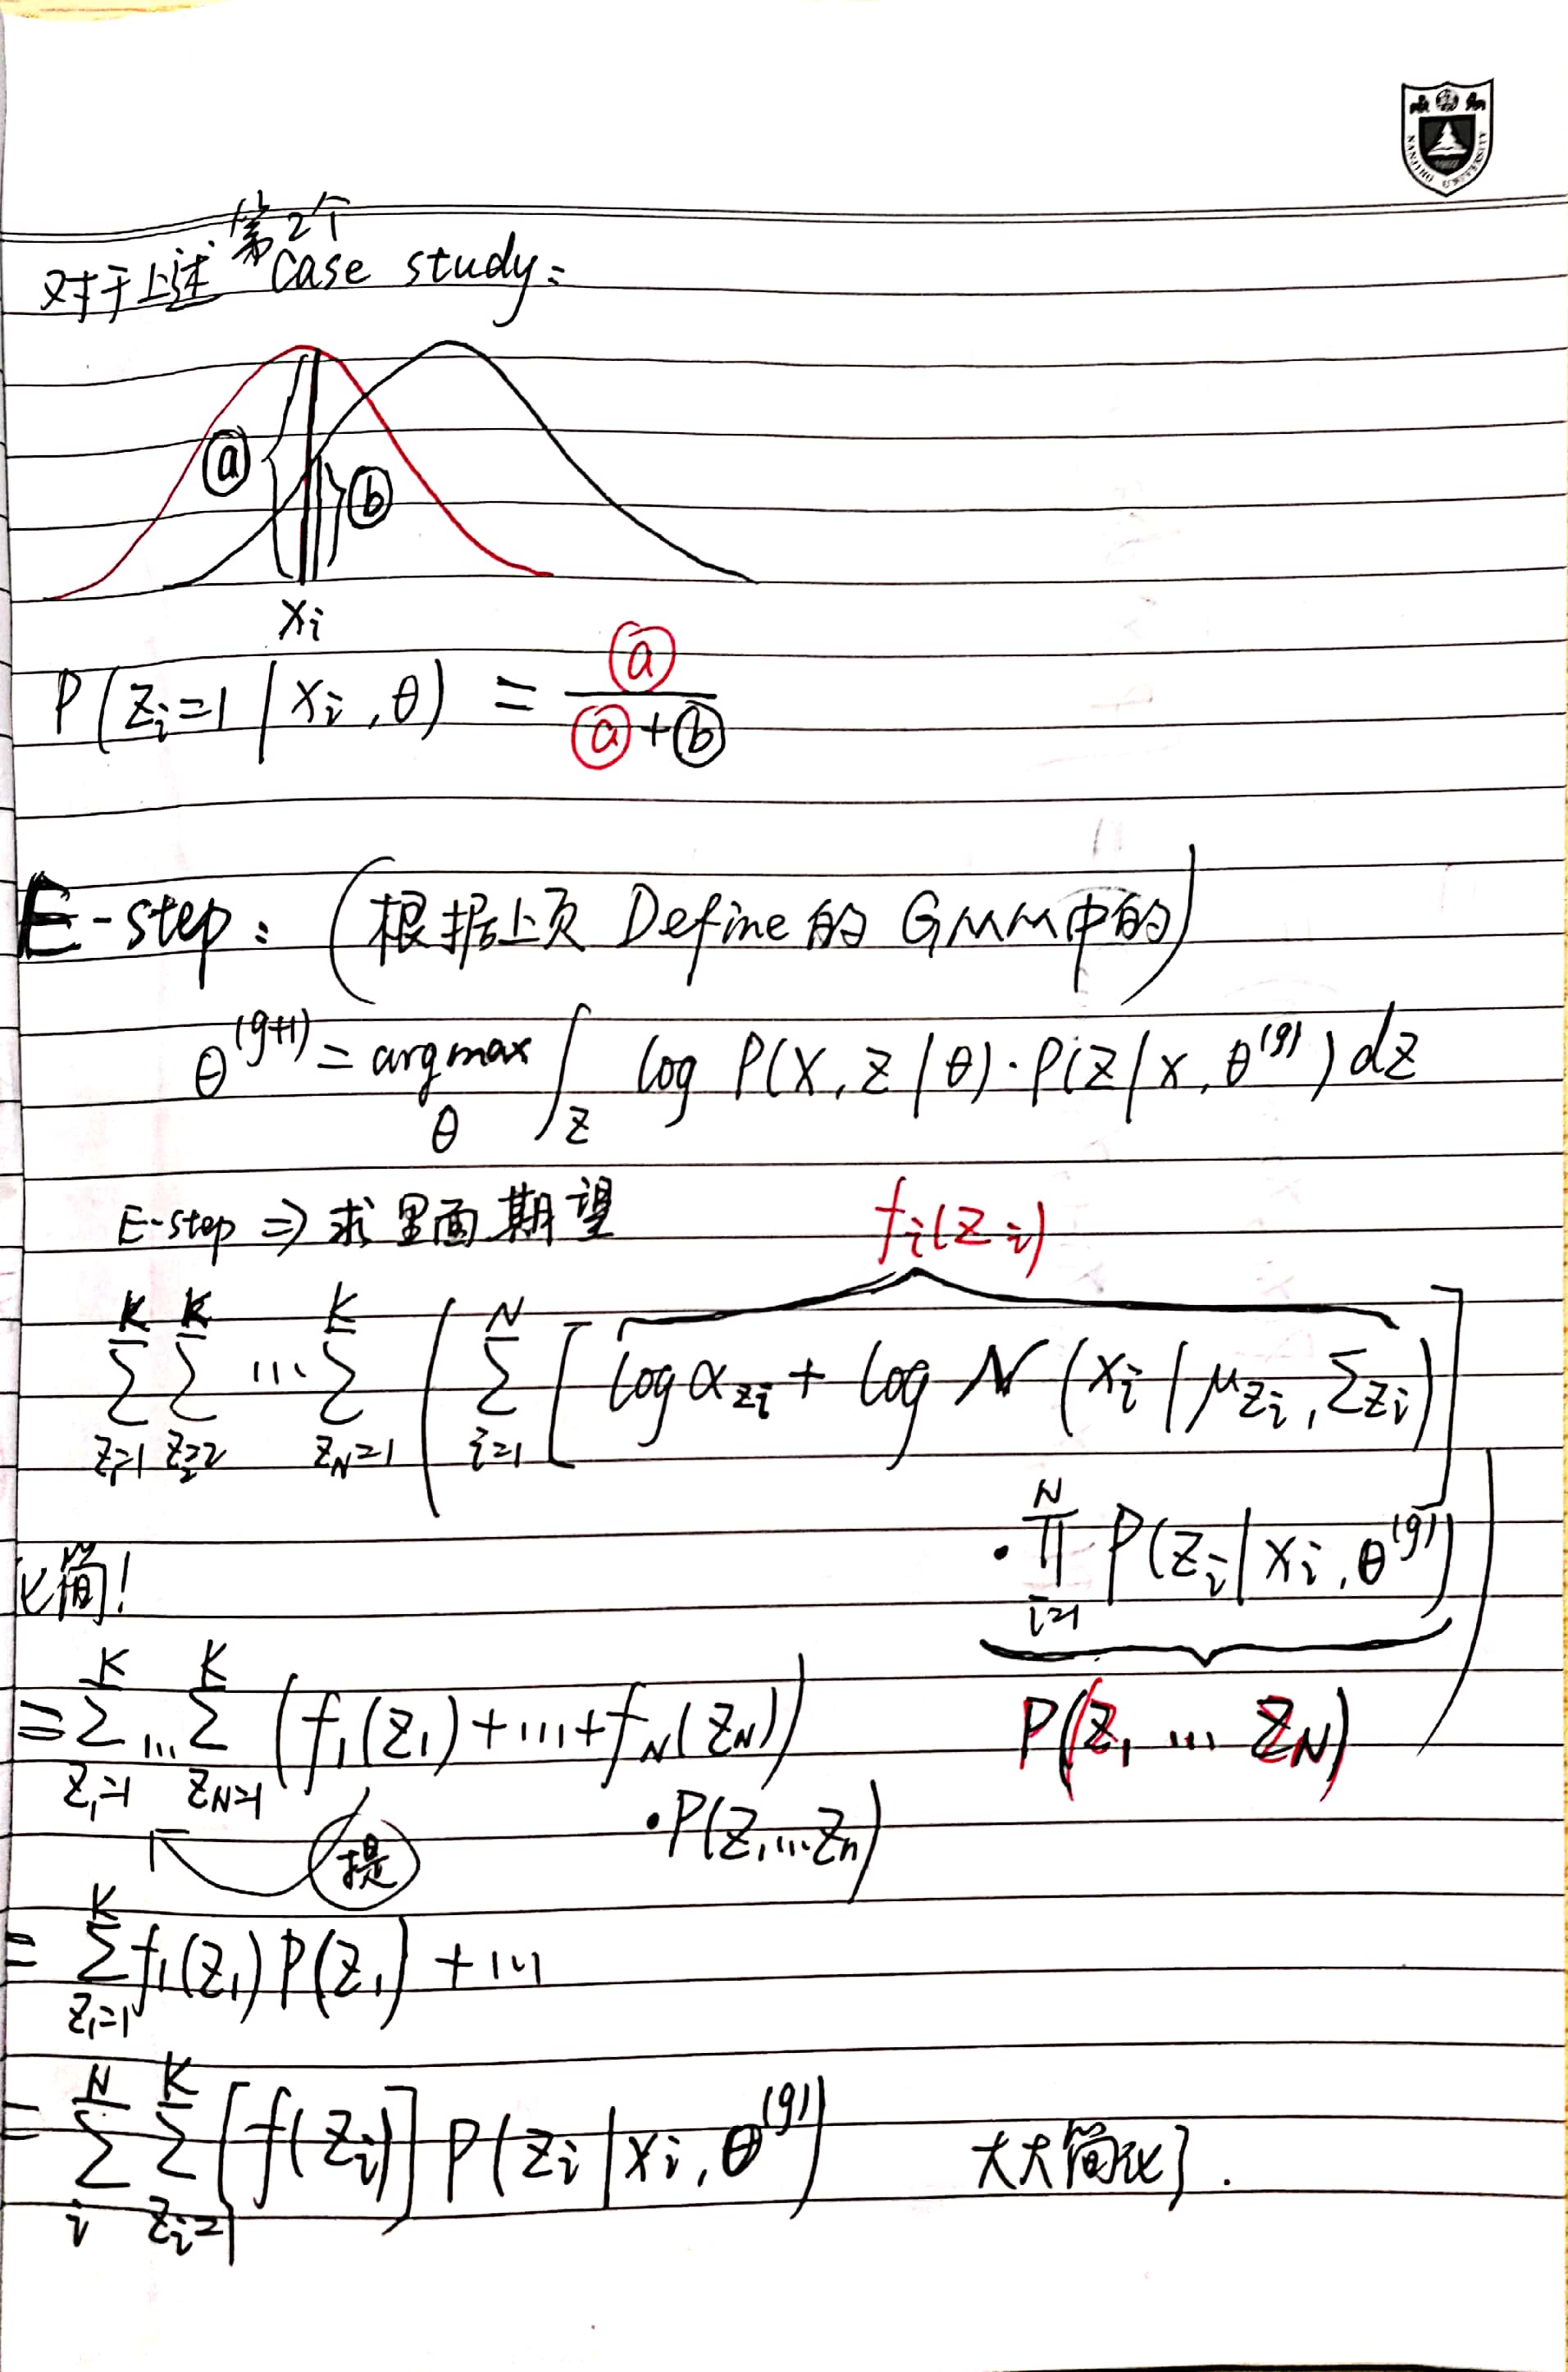 NANJING UNIVERSITY
1902
对于上述第2个 Case study:
ⓐ
ⓑ
xᵢ
P(zᵢ=1 | xᵢ, θ) = ⓐ / (ⓐ + ⓑ)
E-step: (根据上页 Define 的 GMM中的)
θ^(g+1) = argmax_θ ∫_z log P(X, z | θ) · P(z | x, θ^(g)) dz
E-step ⇒ 求里面期望
fᵢ(zᵢ)
∑_{z₁=1}^K ∑_{z₂=2}^K ... ∑_{z_N=1}^K ( ∑_{i=1}^N [ log α_{zᵢ} + log N(xᵢ | μ_{zᵢ}, Σ_{zᵢ}) ]
· ∏_{i=1}^N P(zᵢ | xᵢ, θ^(g)) )
P(z₁ ... z_N)
化简!
= ∑_{z₁=1}^K ... ∑_{z_N=1}^K (f₁(z₁) + ... + f_N(z_N))
· P(z₁...zₙ)
提
= ∑_{z₁=1}^K f₁(z₁) P(z₁) + ...
= ∑_i^N ∑_{zᵢ=1}^K [f(zᵢ)] P(zᵢ | xᵢ, θ^(g)) 大大简化了.